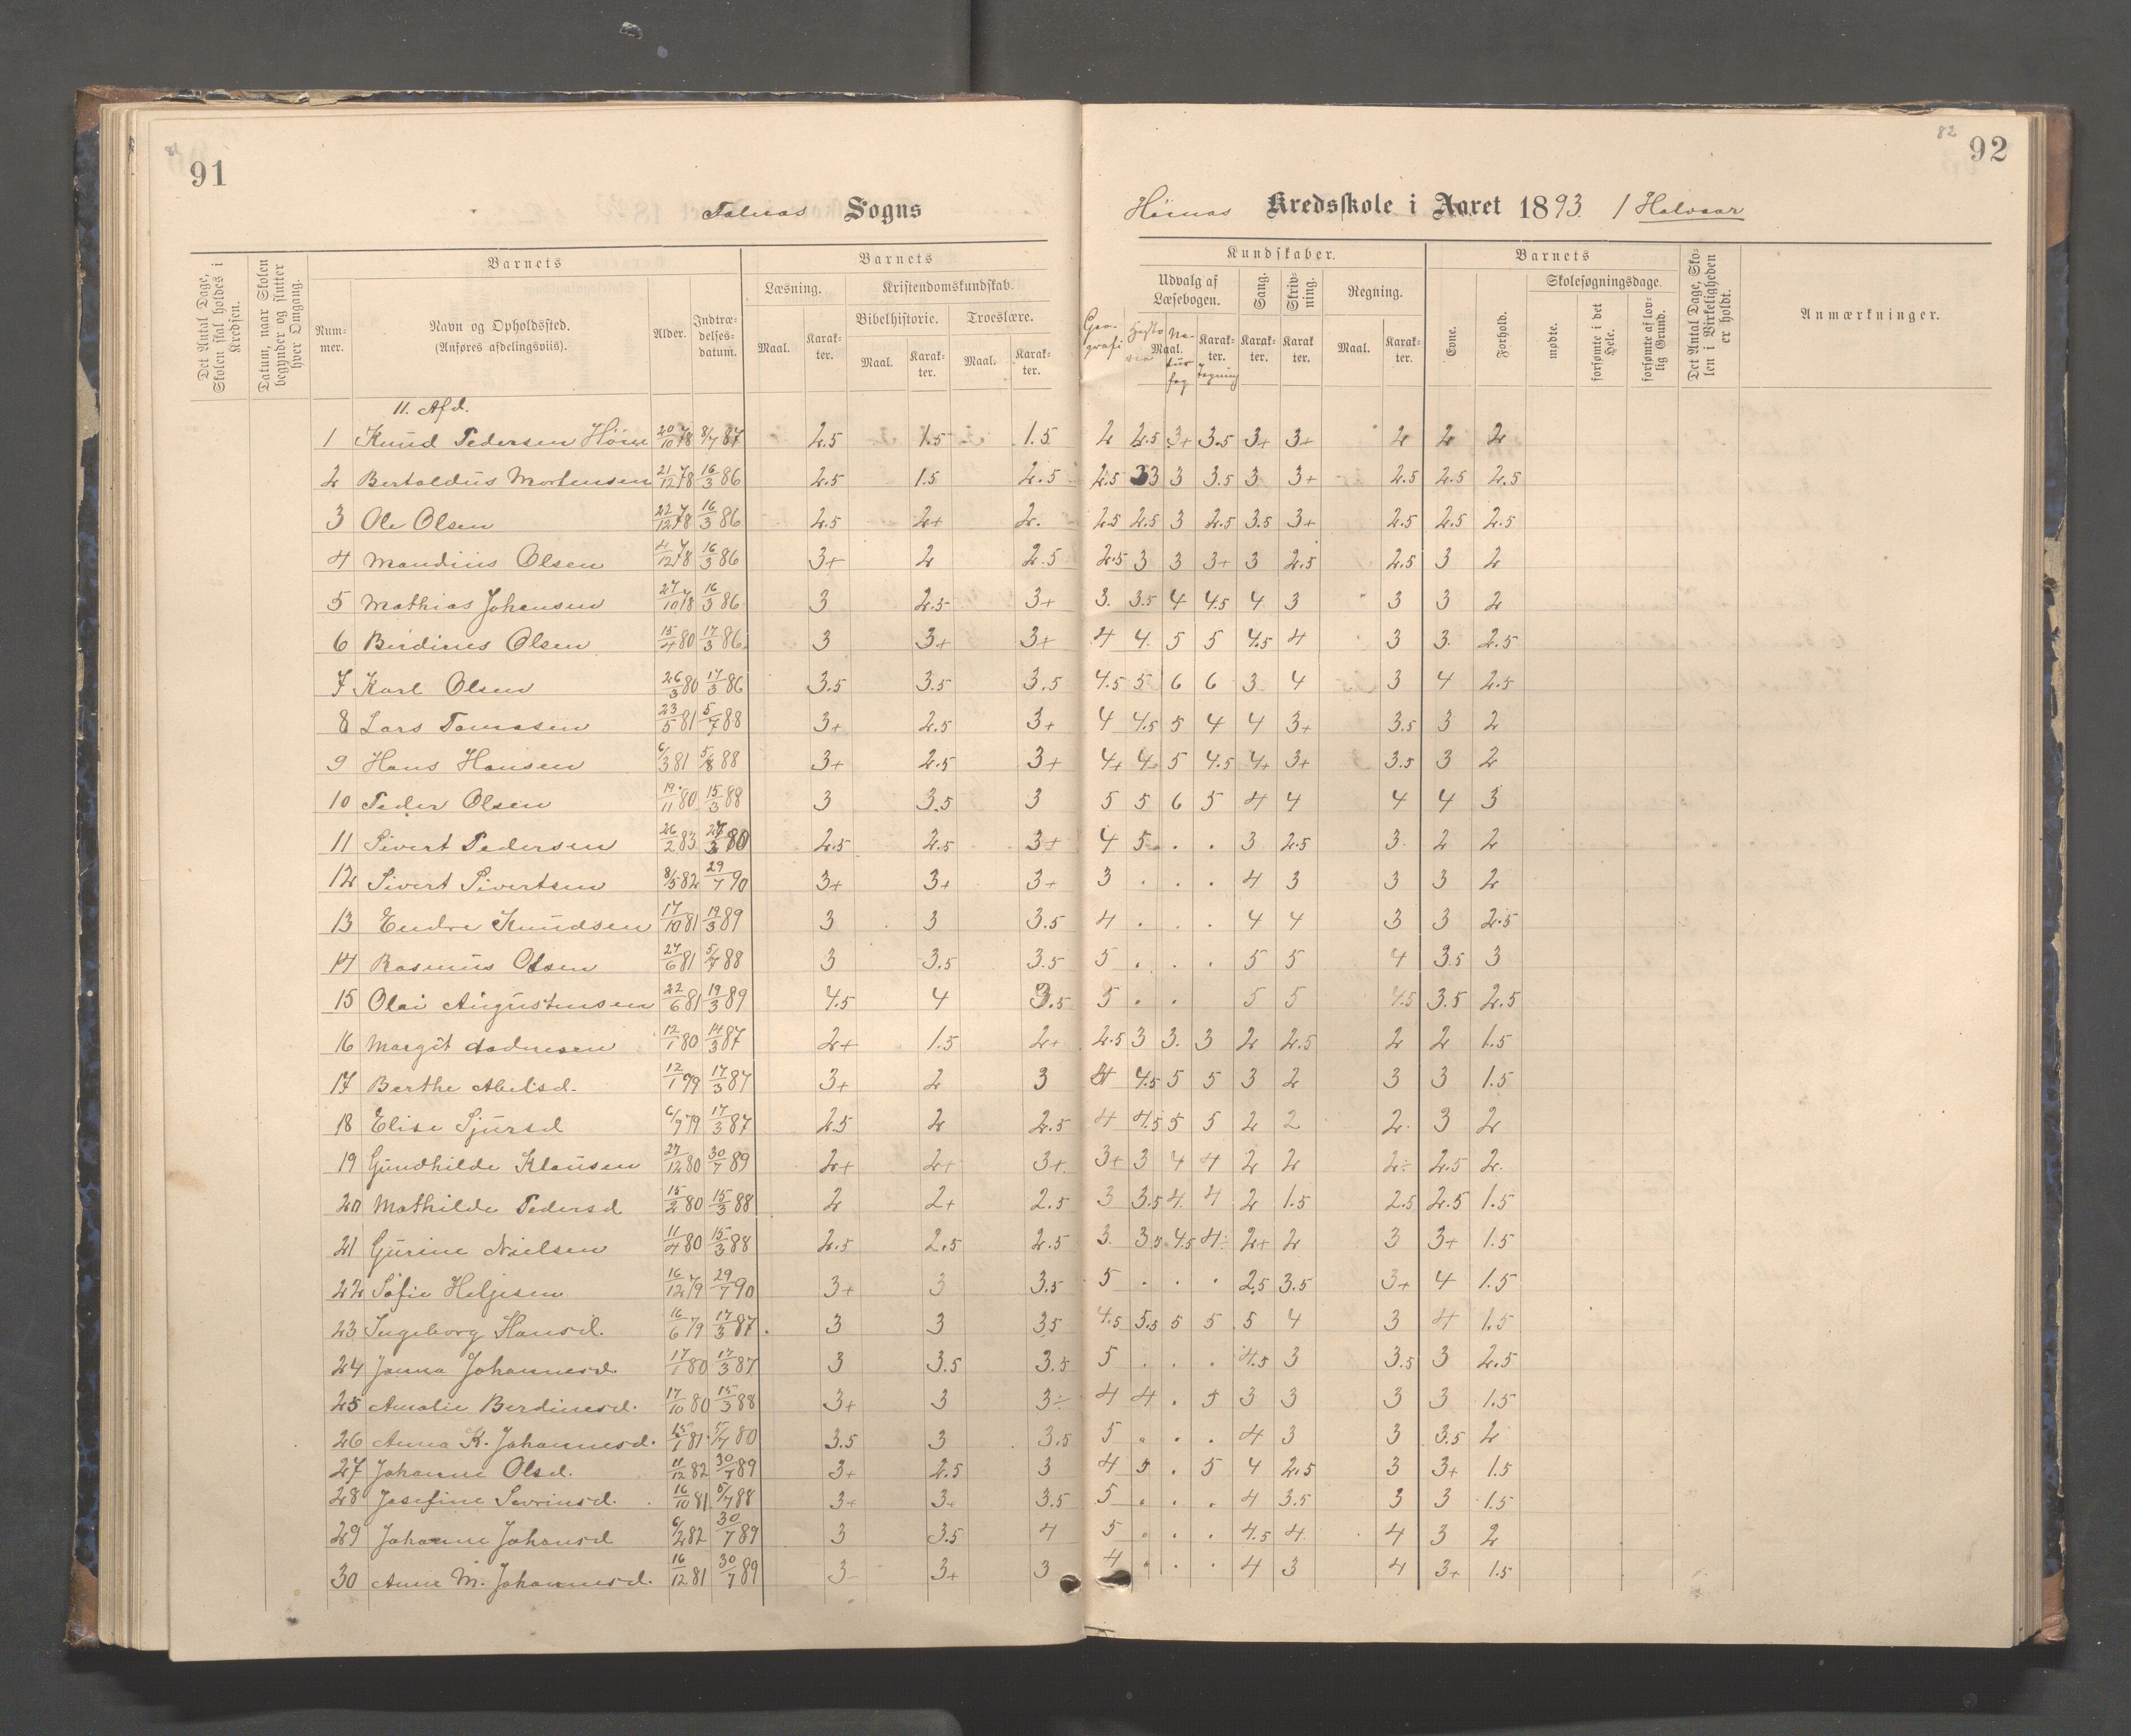 81
91
Sogns
Det Antal Dage, Skolen skal holdes i Kredsen.
Datum, naar Skolen begynder og slutter hver Omgang.
Barnets
Nummer.
Navn og Opholdssted.
(Anføres afdelingsviis).
Alder.
Indtrædelsesdatum.
Barnets
Læsning.
Kristendomskundskab.
Bibelhistorie.
Troeslære.
Maal.
Karakter.
Maal.
Karakter.
Maal.
Karakter.
82
92
Kredsskole i Aaret 1893. 1 Halvaar
Kundskaber.
Geografi
Udvalg af Læsebogen.
Historie
Maal.
Naturfag
Karakter.
Tegning
Sang.
Karakter.
Skrivning.
Karakter
Regning.
Maal.
Karakter.
Barnets
Evne.
Forhold.
Skolesøgningsdage.
mødte.
forsømte i det Hele.
forsømte af lovlig Grund.
Det Antal Dage, Skolen i Virkeligheden er holdt.
Anmærkninger.
11. Afd.
1 Knud Pedersen 20/10 78 8/7 87 2.5 1.5 1.5 2 2.5 3+ 3.5 3+ 3+ 2 2 2
2 Bertoldus Mortensen 21/12 78 16/3 86 2.5 1.5 2.5 2.5 3 3 3.5 3 3+ 2.5 2.5 2.5
3 Ole Olsen 22/12 78 16/3 86 2.5 2+ 2. 2.5 2.5 3 2.5 3.5 3+ 2.5 2.5 2.5
4 Mandius Olsen 4/12 78 16/3 86 3+ 2 2.5 2.5 3 3 3+ 3 2.5 2.5 3 2
5 Mathias Johansen 27/10 78 16/3 86 3 2.5 3+ 3. 3.5 4 4.5 4 3 3 3 2
6 Berdines Olsen 15/4 80 17/3 86 3 3+ 3+ 4 4. 5 5 4.5 4 3 3. 2.5
7 Karl Olsen 26/3 80 17/3 86 3.5 3.5 3.5 4.5 5 6 6 3 4 3 4 2.5
8 Lars Tomasen 23/5 81 5/7 88 3+ 2.5 3+ 4 4.5 5 4 4 3+ 3.5 3 2
9 Hans Hansen 6/3 81 5/8 88 3+ 2.5 3+ 4+ 4. 5 4.5 4+ 3+ 3.5 3 2
10 Peder Olsen 19/11 80 15/3 88 3 3.5 3 5 5 6 5 4 4 4 4 3
11 Sivert Pedersen 26/2 83 2.5 2.5 3+ 4 5 . . 3 2.5 3. 2 2
12 Sivert Sivertsen 8/5 82 29/7 90 3+ 3+ 3+ 3 . . . 4 3 3 3 2
13 Endre Knudsen 17/10 81 19/3 89 3 3 3.5 4 . . . 4 4 3 3 2.5
14 Rasmus Olsen 27/6 81 5/7 88 3 3.5 3.5 5 . . . 5 5 4 3.5 3
15 Olai Augustensen 22/6 81 19/3 89 4.5 4 3.5 5 . . 5 5 4.5 3.5 2.5
16 Margit 12/1 80 14/3 87 2+ 1.5 2+ 2.5 3 3. 3 2 2.5 2 2 1.5
17 Berthe Abelsd. 12/1 79 17/3 87 3+ 2 3 4 4.5 5 5 3 2 3 3 1.5
18 Elise Sjursd 6/9 79 17/3 87 2.5 2 2.5 4 4.5 5 5 2 2 2. 3 2
19 Gundhilde Klausen 27/12 80 30/7 89 2+ 2+ 3+ 3+ 3 4 4 2 2 2÷ 2.5 2.
20 Mathilde Pedersd 15/2 80 15/3 88 2 2+ 2.5 3 3.5 4. 4 2 1.5 2.5 2.5 1.5
21 Gurine Nielsen 11/4 80 15/3 88 2.5 2.5 2.5 3. 3.5 4.5 4÷ 2+ 2 3 3+ 1.5
22 Sofie Helgesen 16/12 79 29/7 90 3+ 3 3.5 5 . . . 2.5 3.5 3+ 4 1.5
23 Ingeborg Hansd. 16/6 79 17/3 87 3 3 3.5 4.5 5.5 5 5 5 4 3 4 1.5
24 Janna Johannesd. 17/1 80 17/3 87 3 3.5 3.5 5 . . . 4.5 3 3.5 3 2.5
25 Amalie Berdinesd. 17/10 80 15/3 88 3+ 3 3÷ 4 4 . 5 3 3 3 3 1.5
26 Anna K. Johannesd. 15/1 81 5/7 80 3.5 3 3.5 5 . . . 4 3 3 3.5 2
27 Johanne Olsd. 11/12 82 30/7 89 3+ 2.5 3 4 5 . 5 4 2.5 3 3+ 1.5
28 Josefine Sevrinsd. 16/10 81 5/7 88 3+ 3+ 3.5 5 . . . 4 3.5 3 3 1.5
29 Johanne Johansd 6/2 82 30/7 89 3 3.5 4 5 . . . 4.5 4 4 3 2
30 Anne M. Johannesd. 16/12 81 30/7 89 3 3+ 3 4 . . . 4 3 4 3+ 1.5